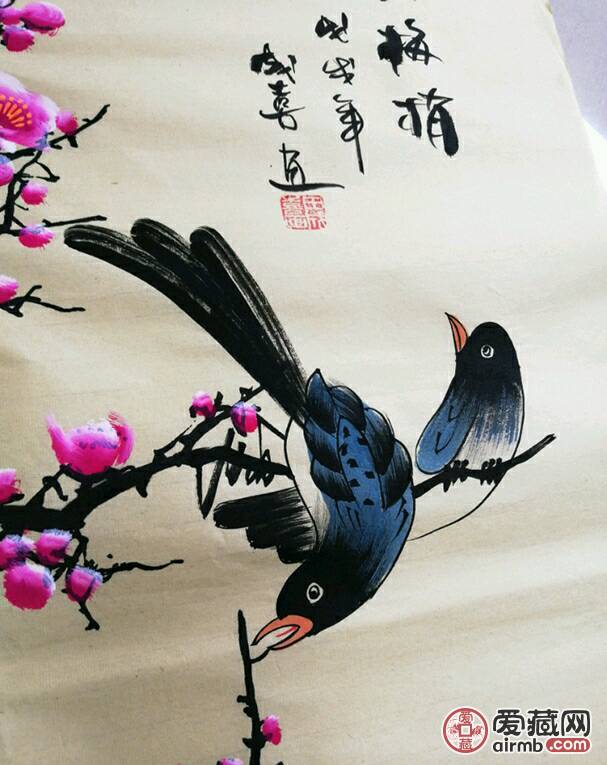 梅梢
戊戌年
成喜画
爱藏网
airmb.com
爱
藏